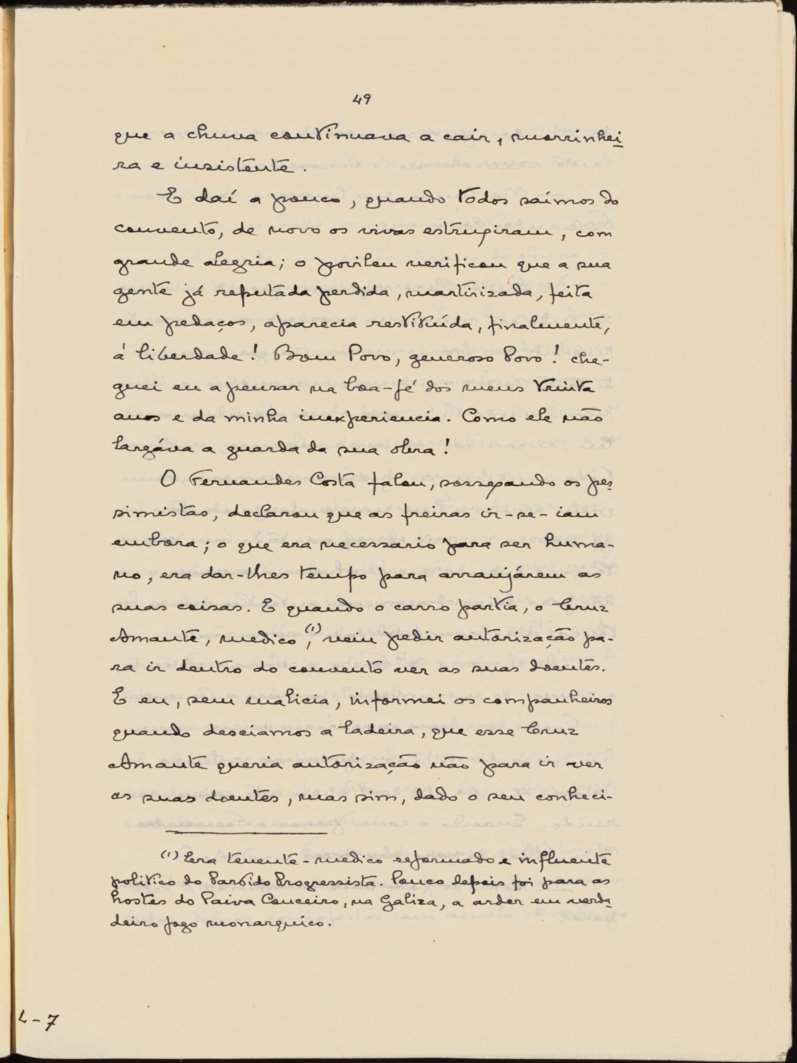 49
que a chuva continuava a cair, morrinhei-
ra e insistente.
E daí a pouco, quando todos saímos do
convento, de novo os vivas estrugiram, com
grande alegria; o povileu verificou que a sua
gente já reputada perdida, martirizada, feita
em pedaços, aparecia restituída, finalmente,
á liberdade! Bom Povo, generoso Povo! che-
guei eu a pensar na boa-fé dos meus trinta
anos e da minha inexperiencia. Como ele não
largáva a guarda da sua obra!
O Fernandes Costa falou, sossegando os pes-
simistas, declarou que as freiras ir-se-iam
embora; o que era necessario para ser huma-
no, era dar-lhes tempo para arranjárem as
suas coisas. E quando o carro partia, o Cruz
Amante, medico (1), veiu pedir autorização pa-
ra ir dentro do convento ver as suas doentes.
E eu, sem malicia, informei os companheiros
quando desciamos a ladeira, que esse Cruz
Amante queria autorização não para ir ver
as suas doentes, mas sim, dado o seu conheci-
(1) Era tenente-medico reformado e influente
politico do Partido Progressista. Pouco depois foi para as
hostes do Paiva Couceiro, na Galiza, a arder em verda-
deiro fogo monarquico.
L-7